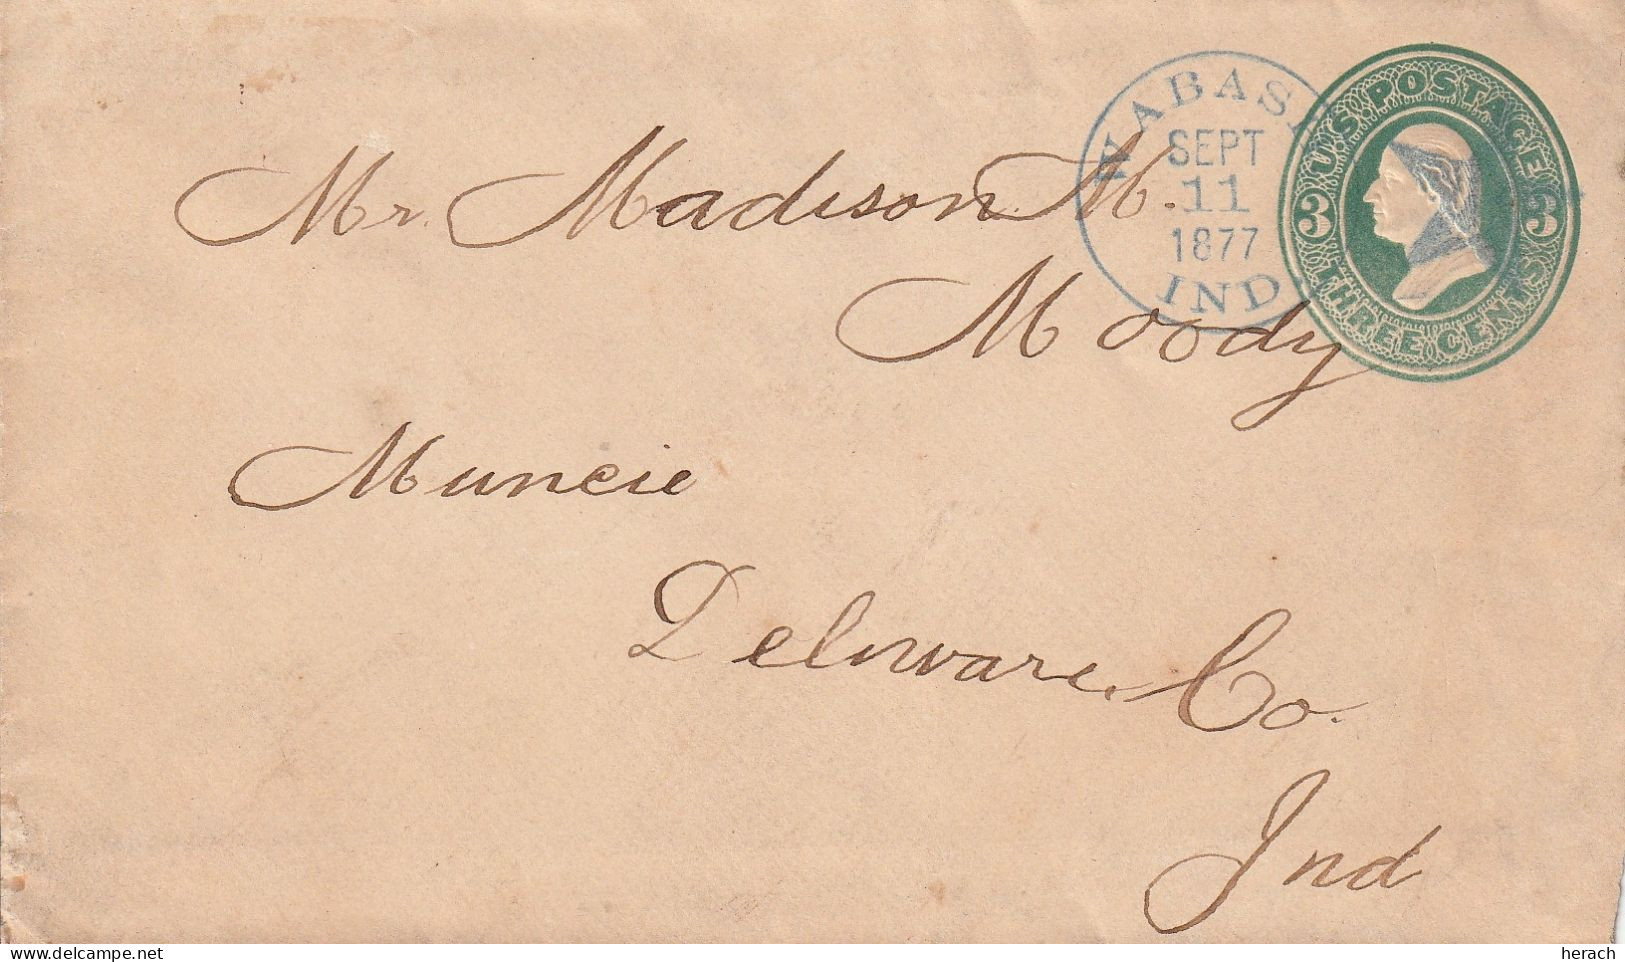 WABASH
SEPT
11
1877
IND
U.S. POSTAGE
3 3
THREE CENTS
Mr. Madison M.
Moody
Muncie
Delaware Co.
Ind
delcampe.net
herach